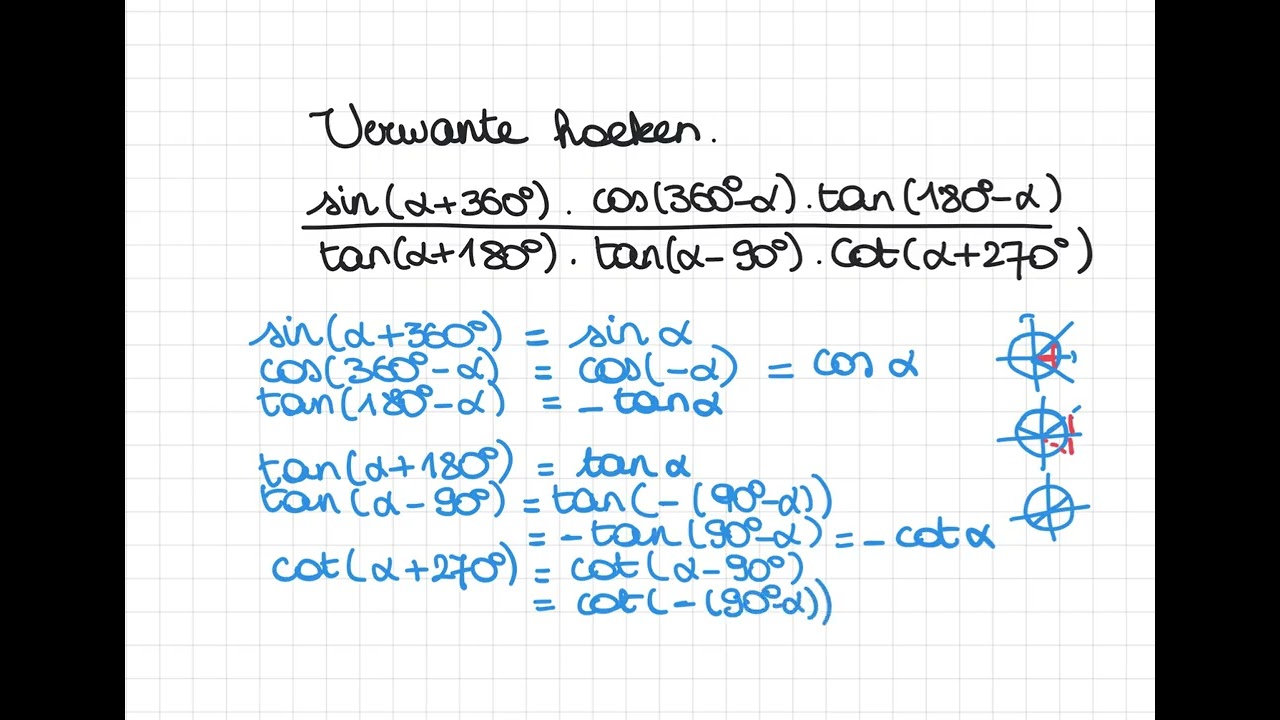 Verwante hoeken.
sin(α+360°) . cos(360°-α) . tan(180°-α)
tan(α+180°) . tan(α-90°) . cot(α+270°)
sin(α+360°) = sin α
cos(360°-α) = cos(-α) = cos α
tan(180°-α) = - tan α
tan(α+180°) = tan α
tan(α-90°) = tan(-(90°-α))
= - tan(90°-α) = - cot α
cot(α+270°) = cot(α-90°)
= cot(-(90°-α))